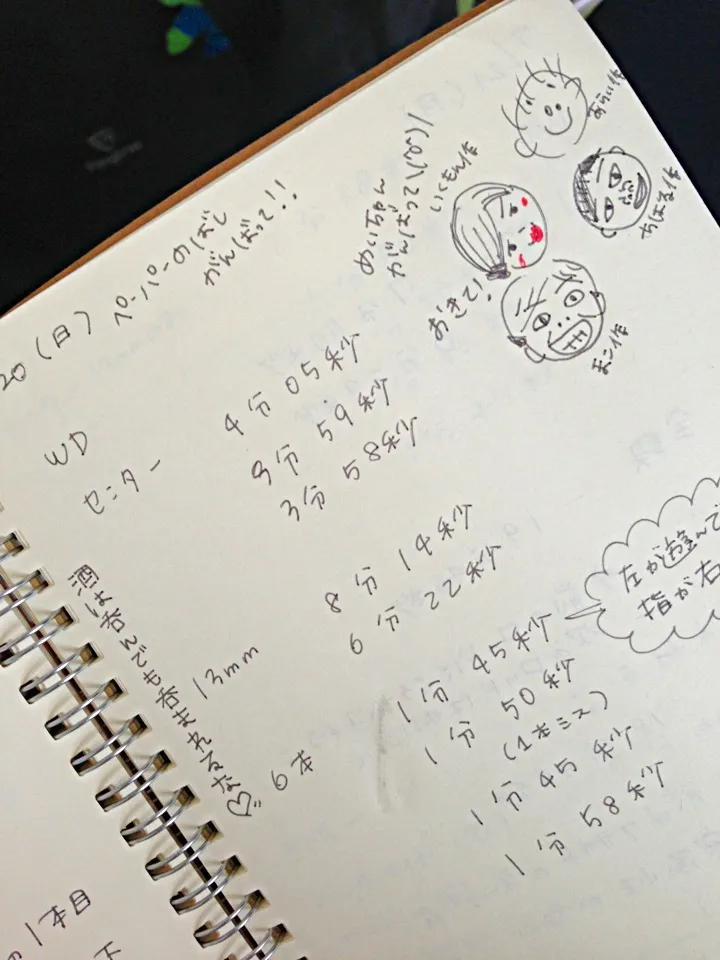 20（日）
ペーパーのばし
がんばって!!
めぃちゃん
がんばって\(^o^)/
いくもん作
あらい作
やばる作
おきて!
まこ作
WD
センター
4分 05秒
3分 59秒
3分 58秒
13mm
8分 14秒
6分 22秒
6本
1分 45秒
1分 50秒
（1本ミス）
1分 45秒
1分 58秒
左が遊んで
指が右
酒は呑んでも呑まれるな♡
1本目
下